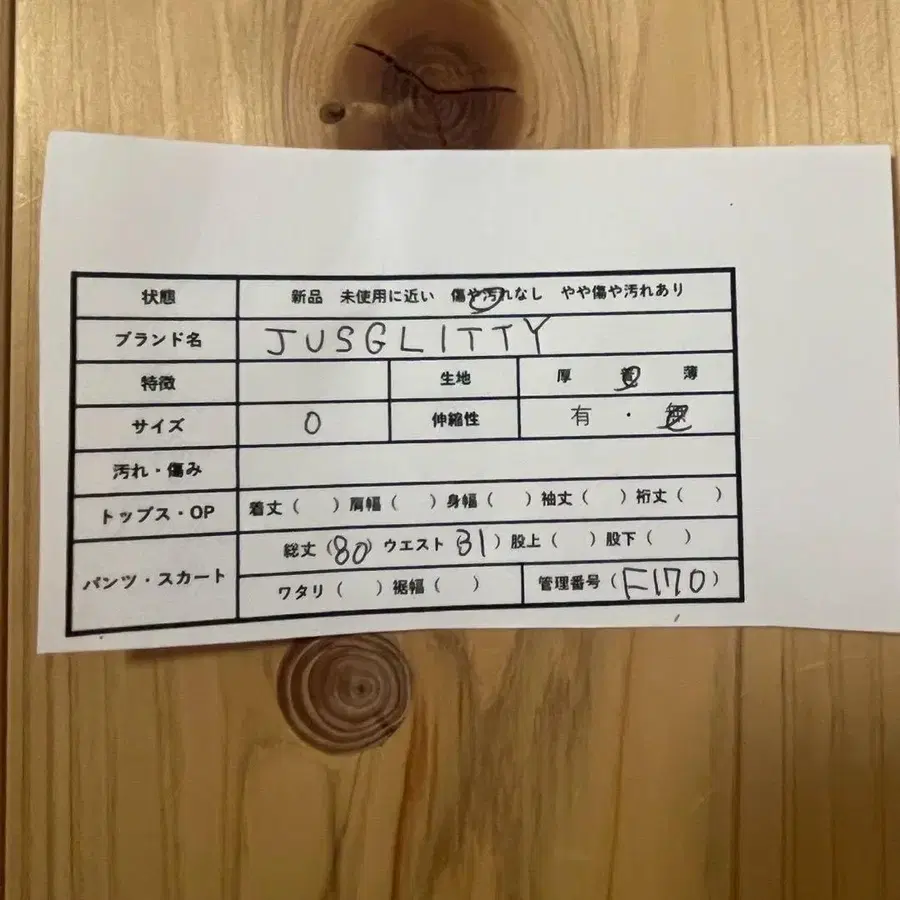 状態 新品 未使用に近い 傷や汚れなし やや傷や汚れあり
ブランド名 JUSGLITTY
特徴 生地 厚 普 薄
サイズ 0 伸縮性 有 ・ 無
汚れ・傷み
トップス・OP 着丈（ ）肩幅（ ）身幅（ ）袖丈（ ）裄丈（ ）
パンツ・スカート 総丈（80）ウエスト 31）股上（ ）股下（ ）
ワタリ（ ）裾幅（ ） 管理番号（F170）